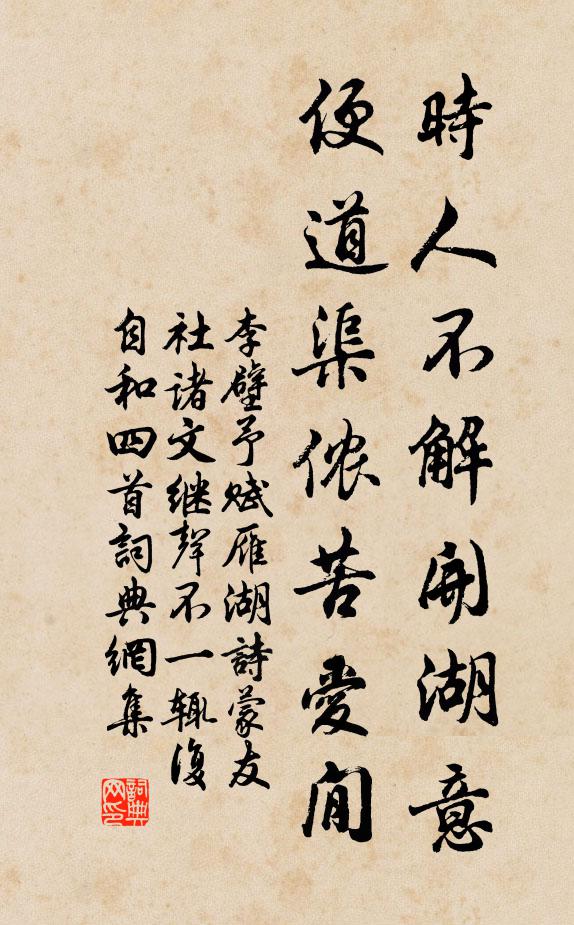 時人不解開湖意
便道渠儂苦愛閒
李壁予賦雁湖詩蒙友
社诸文继聲不一辄復
自和四首詞典網集
詞典网印